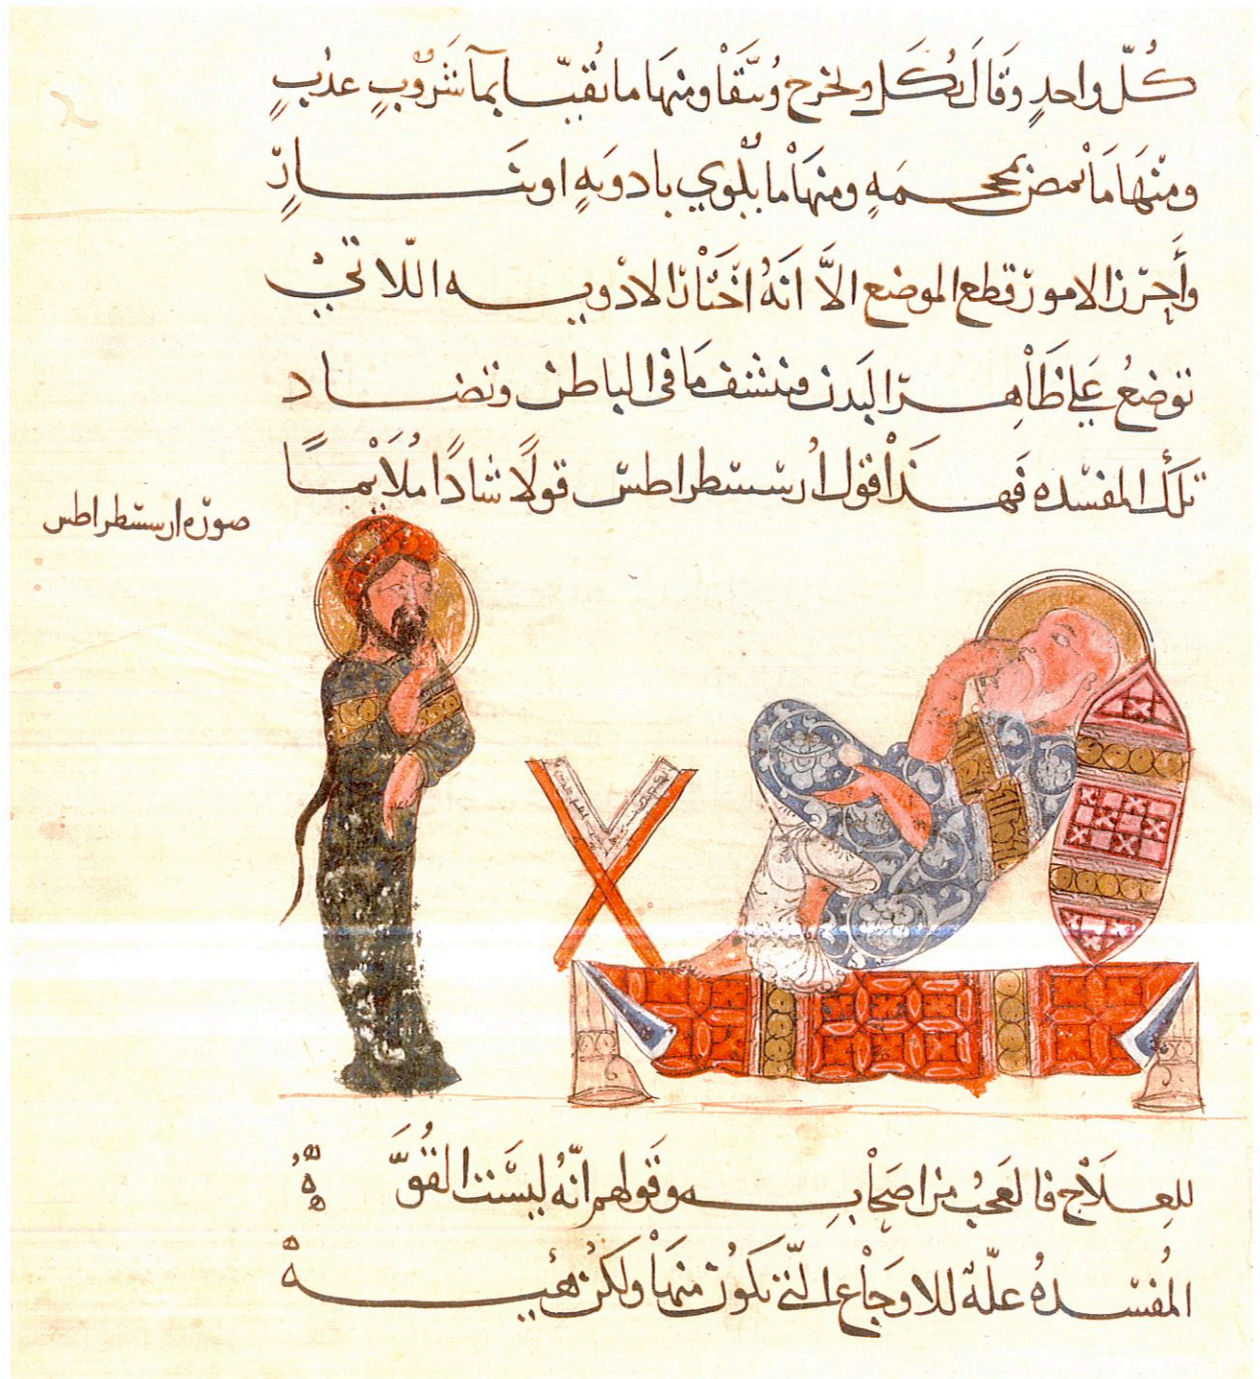 كُلّ واحدٍ وَقَالَ تُكَل ولخرج وُتنَّقَاْ ومنهَا ما تُقيّا بمآ شَرُوبٍ عذبٍ
ومنْهَا مَاْ بمص بمحجمَهٍ ومنهَاْ ما بُلْوي بادويَهٍ او بنَارٍ
وأَجرّ الامور قطع الموضع الاَّ انَهُ اخْتَاْر الادْويه اللّاتيْ
توضعُ عَلي ظَاْهِر البَدن فتنشف مَا في الباطن وتضاد
تلكَ المفسّده فَهذَاْ قول اُرسسطراطس قولًا شادًا مُلَاْيمًا
صورَه ارسسطراطس
للعِلَاْج فالعَجُب من اصَحْابِه وقَولهم انّهُ ليسَّت القُوَّهُ
المُفسّدهُ علّة للاوجَاْع التّي تكَوُن منهَاْ ولكَنُ هُيهْ